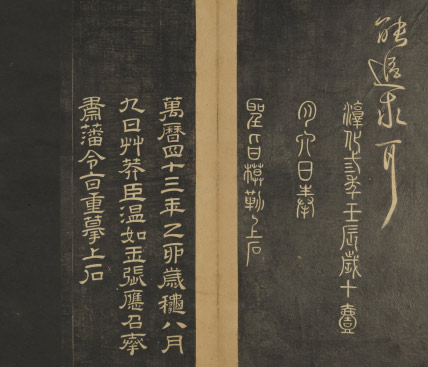 淳化三年壬辰歲十壹
月六日奉
聖旨模勒上石
萬曆四十三年乙卯歲穐八月
九日艸莽臣溫如玉張應召奉
肅藩令旨重摹上石